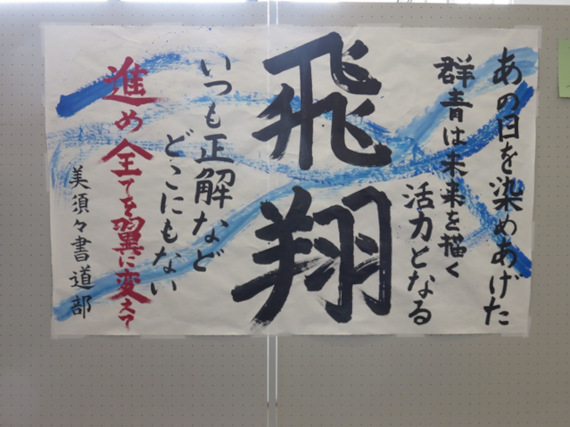 あの日を染めあげた
群青は未来を描く
活力となる
飛翔
いつも正解など
どこにもない
進め全てを翼に変えて
美須々書道部